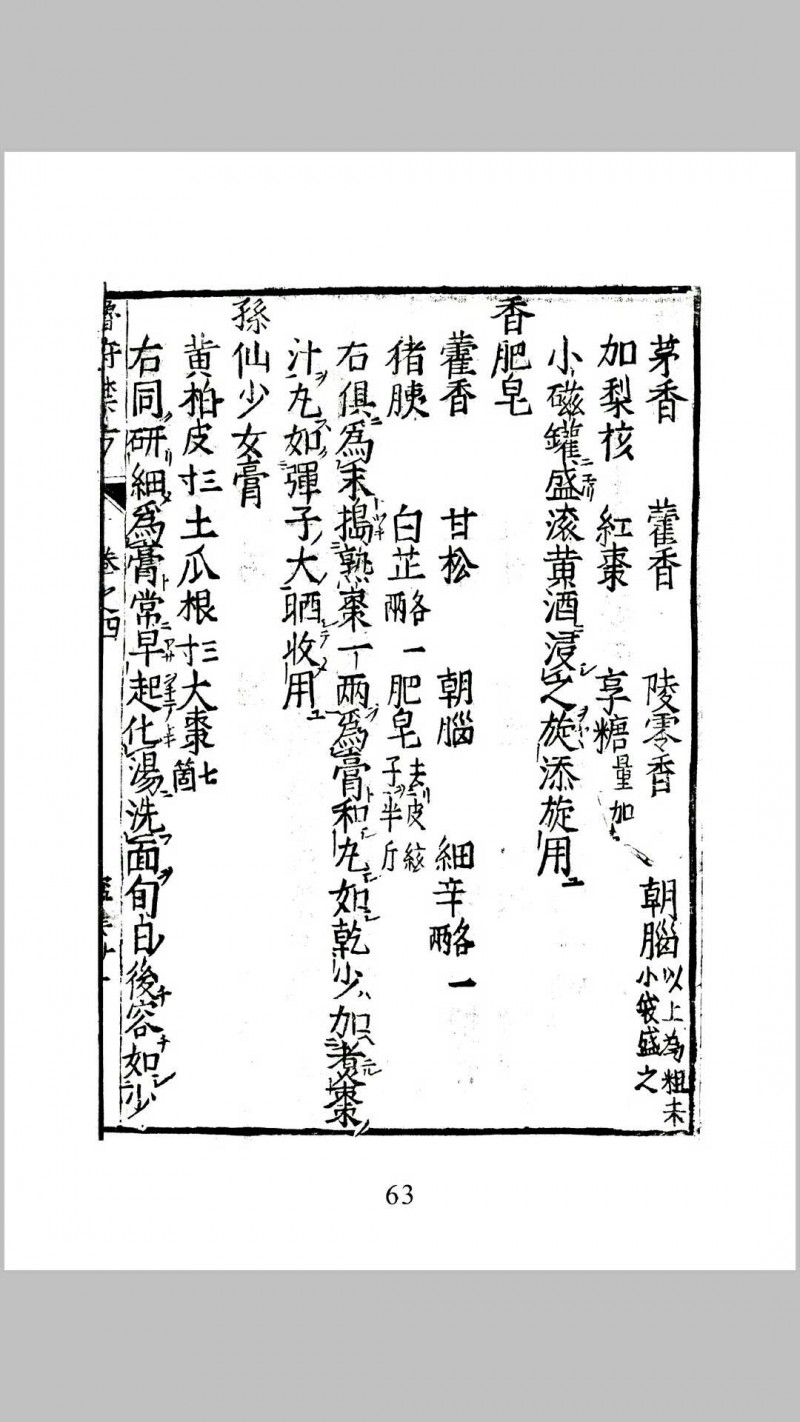 茅香 藿香 陵零香 朝腦以上為粗末小袋盛之
加梨核 紅棗 享糖量加
小磁罐盛滚黄酒浸之旋添旋用
香肥皂
藿香 甘松 朝腦 細辛各一兩
猪胰 白芷各一兩 肥皂去皮絃子半斤
右俱為末搗熟棗一兩為膏和丸如乾少加煮棗
汁丸如彈子大晒收用
孫仙少女膏
黄柏皮三寸 土瓜根三寸 大棗七箇
右同研細為膏常早起化湯洗面旬日後容如少
魯府禁方 卷之四
63